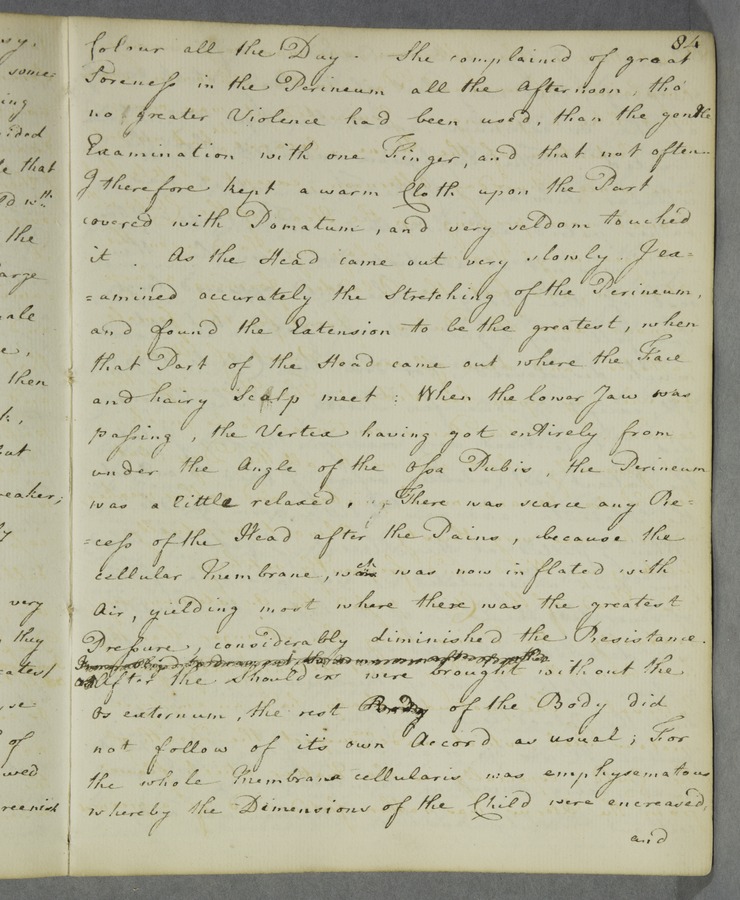 84
Colour all the Day. She complained of great
Soreness in the Perineum all the Afternoon, tho'
no greater Violence had been used, than the gentle
Examination with one Finger, and that not often.
I therefore kept a warm Cloth upon the Part
covered with Pomatum, and very seldom touched
it. As the Head came out very slowly. I ex=
=amined accurately the Stretching of the Perineum,
and found the Extension to be the greatest, when
that Part of the Head came out where the Face
and hairy Scalp meet: When the lower Jaw was
passing, the Vertex having got entirely from
under the Angle of the Ossa Pubis, the Perineum
was a little relaxed. There was scarce any Re=
=cess of the Head after the Pains, because the
cellular Membrane, wch was now inflated with
Air, yielding most where there was the greatest
Pressure, considerably diminished the Resistance.
After the Shoulders were brought without the
Os externum, the rest of the Body did
not follow of it's own Accord as usual; For
the whole Membrana cellularis was emphysematous
whereby the Dimensions of the Child were encreased,
and
some=
ing
that
the
then
very
they
of